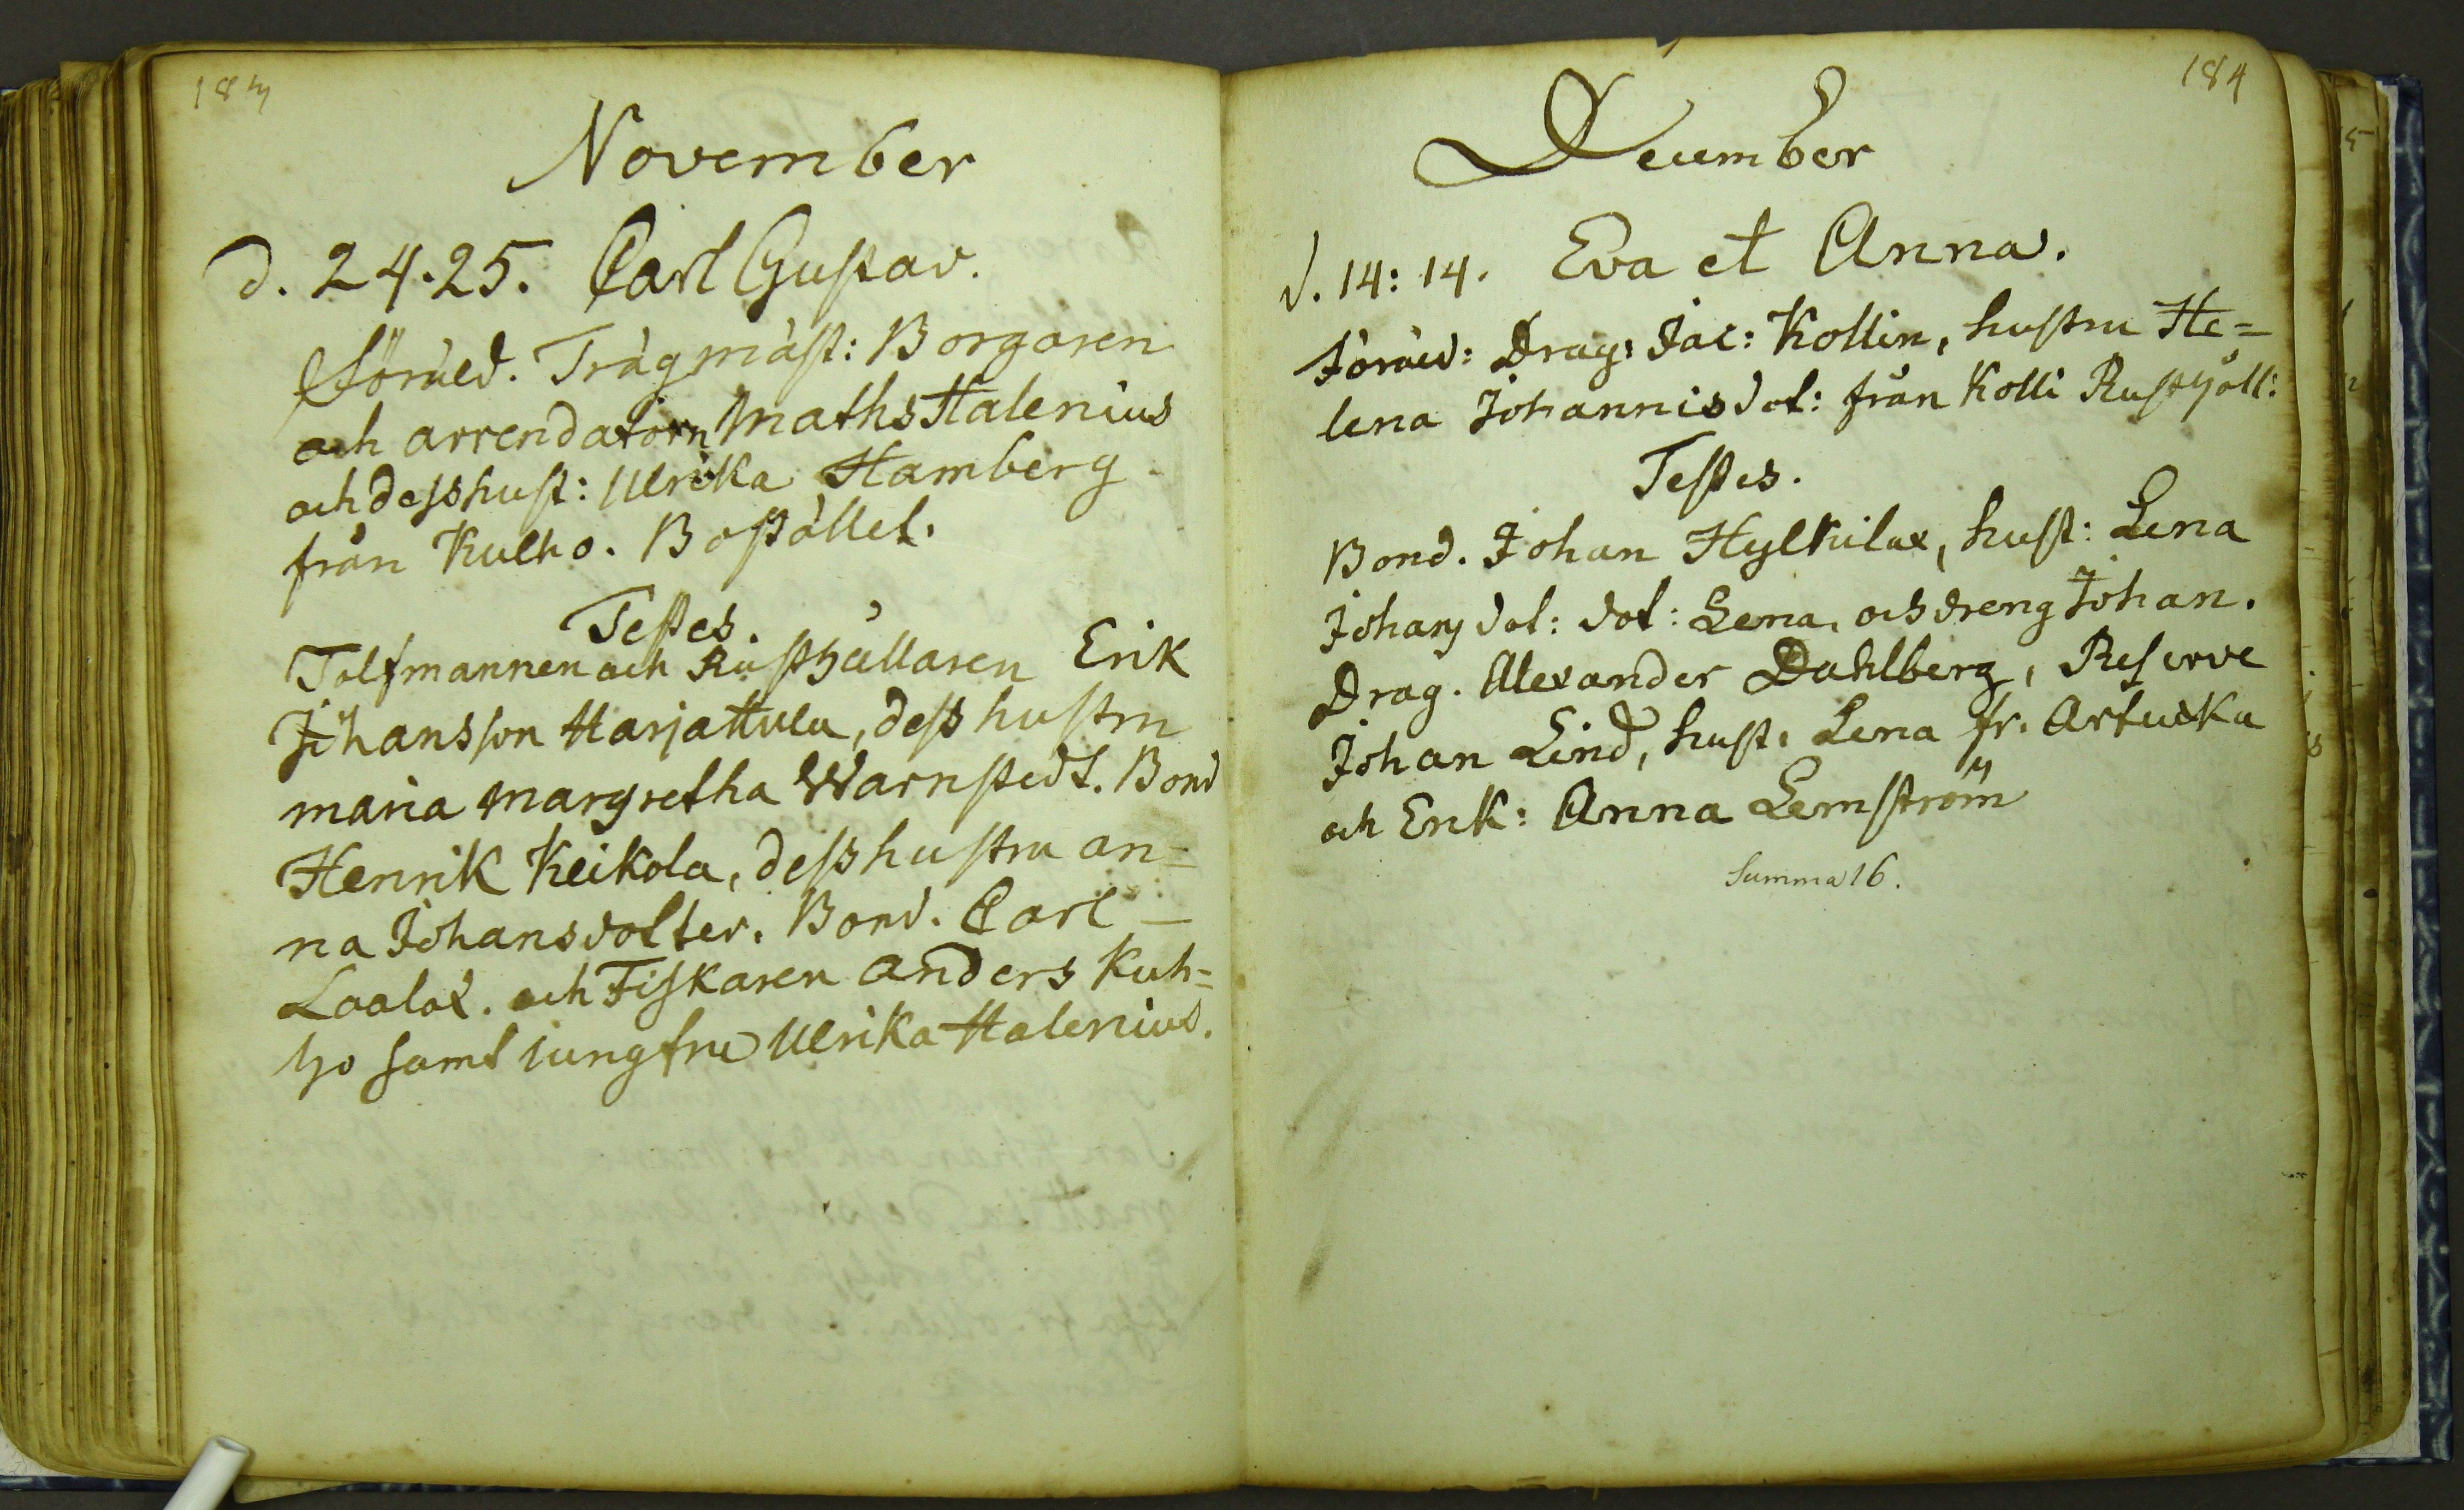 183
November
d. 24.25. Carl Gustav.
föräld. Trägmäst: Borgaren
och arrendatorn Maths Halenius
och dess hust: Ulrika Hamberg
från Kulho. Boställlet.
Testes.
Tolfmannen och Rusthållaren Erik
Johansson Harjattula, dess hustru
maria margretha Warnstedt. Bond
Henrik Keikola, dess hustru an=
na Johansdotter. Bond. Carl
Laalax. och Fiskaren anders Kuh=
ho samt jungfru Ulrika Halenius.
184
December
d. 14: 14. Eva et Anna.
Föräld: Drag: Jac: Kollin, hustru He=
lena Johannisdot: från Kolli Rusthåll:
Testes.
Bond. Johan Hylkilax, hust: Lena
Johansdot: dot: Lena, och dreng Johan.
Drag. Alexander Dahlberg, Reserve
Johan Lind, hust: Lena fr. Artucka
och Enk: Anna Lemström
Summa 16.